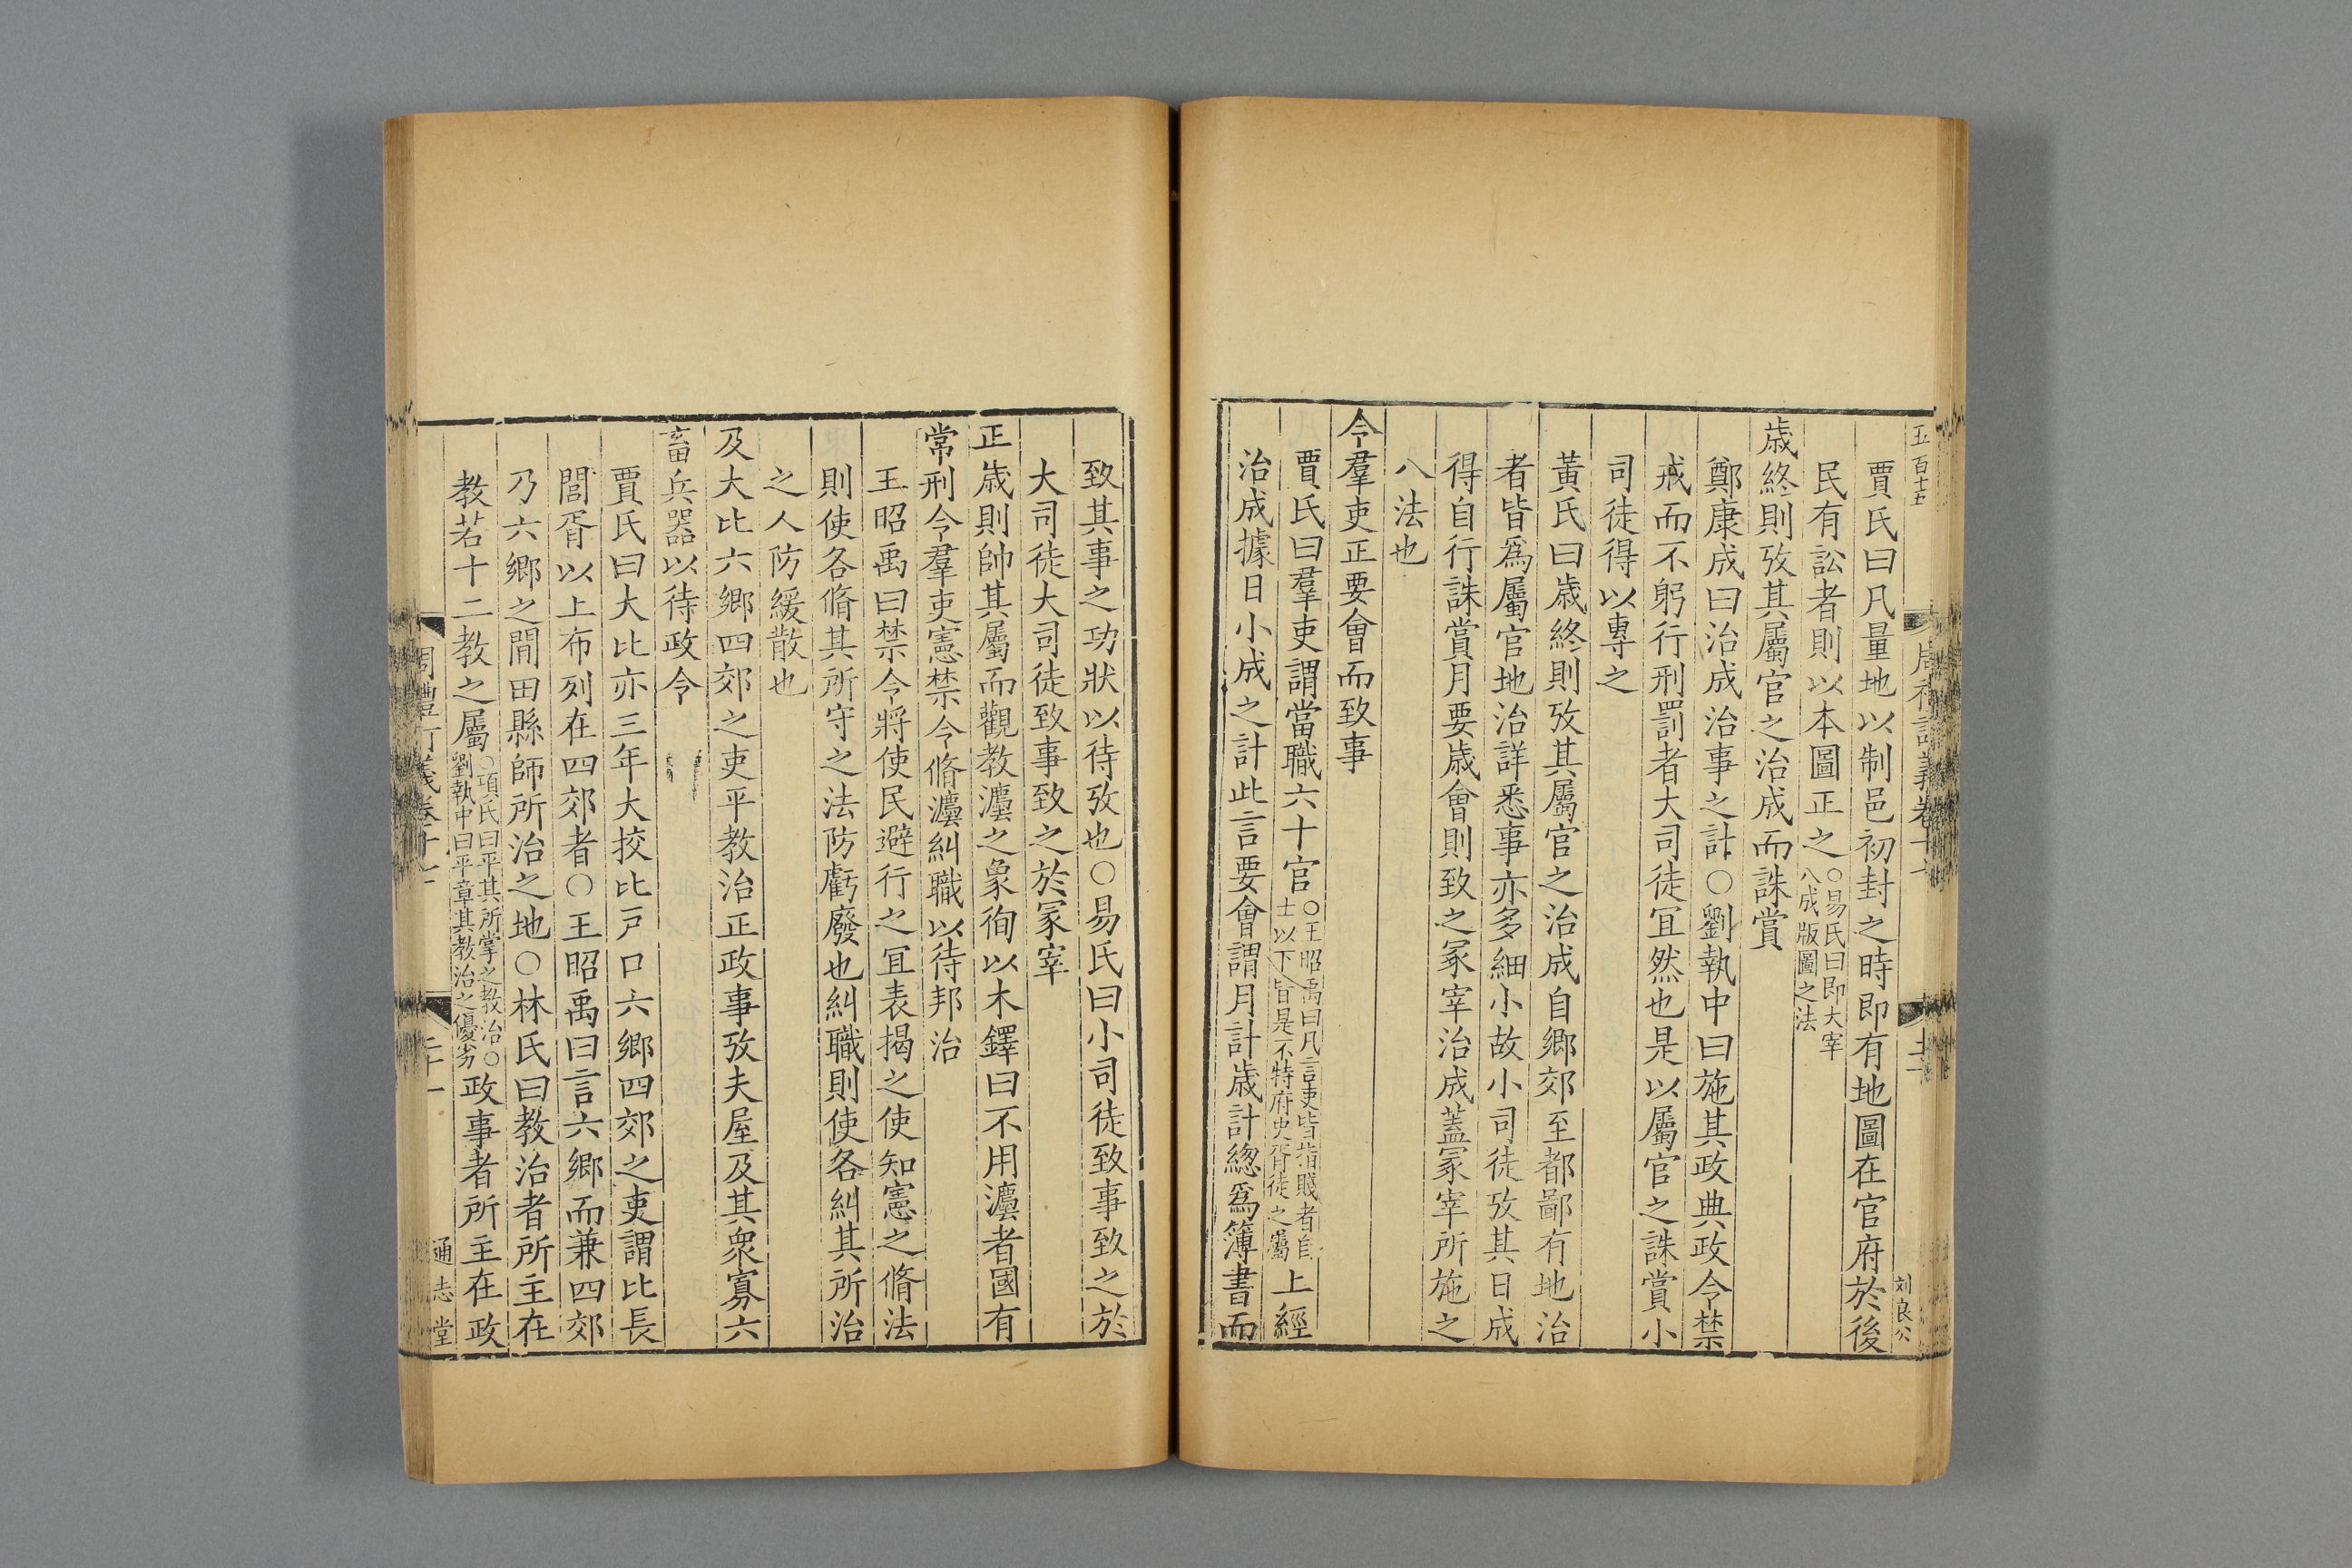 五百十五
賈氏曰凡量地以制邑初封之時即有地圖在官府於後
民有訟者則以本圖正之○易氏曰即大宰八成版圖之法
歳終則攷其屬官之治成而誅賞
鄭康成曰治成治事之計○劉執中曰施其政典政令禁
戒而不躬行刑罰者大司徒冝然也是以屬官之誅賞小
司徒得以專之
黃氏曰歳終則攷其屬官之治成自鄉郊至都鄙有地治
者皆爲屬官地治詳悉事亦多細小故小司徒攷其日成
得自行誅賞月要歳會則致之冢宰治成蓋冢宰所施之
八法也
令羣吏正要會而致事
賈氏曰羣吏謂當職六十官○王昭禹曰凡言吏皆指賤者自士以下皆是不特府史胥徒之屬上經
治成據日小成之計此言要會謂月計歳計緫爲簿書而
刘良公
致其事之功狀以待攷也○易氏曰小司徒致事致之於
大司徒大司徒致事致之於冢宰
正歳則帥其屬而觀教灋之象徇以木鐸曰不用灋者國有
常刑令羣吏憲禁令脩灋糾職以待邦治
王昭禹曰禁令將使民避行之冝表揭之使知憲之脩法
則使各脩其所守之法防虧廢也糾職則使各糾其所治
之人防緩散也
及大比六鄉四郊之吏平教治正政事攷夫屋及其衆寡六
畜兵器以待政令
賈氏曰大比亦三年大挍比戸口六鄉四郊之吏謂比長
閭胥以上布列在四郊者○王昭禹曰言六鄉而兼四郊
乃六鄉之閒田縣師所治之地○林氏曰教治者所主在
教若十二教之屬○項氏曰平其所掌之教治○劉執中曰平章其教治之優劣政事者所主在政
通志堂